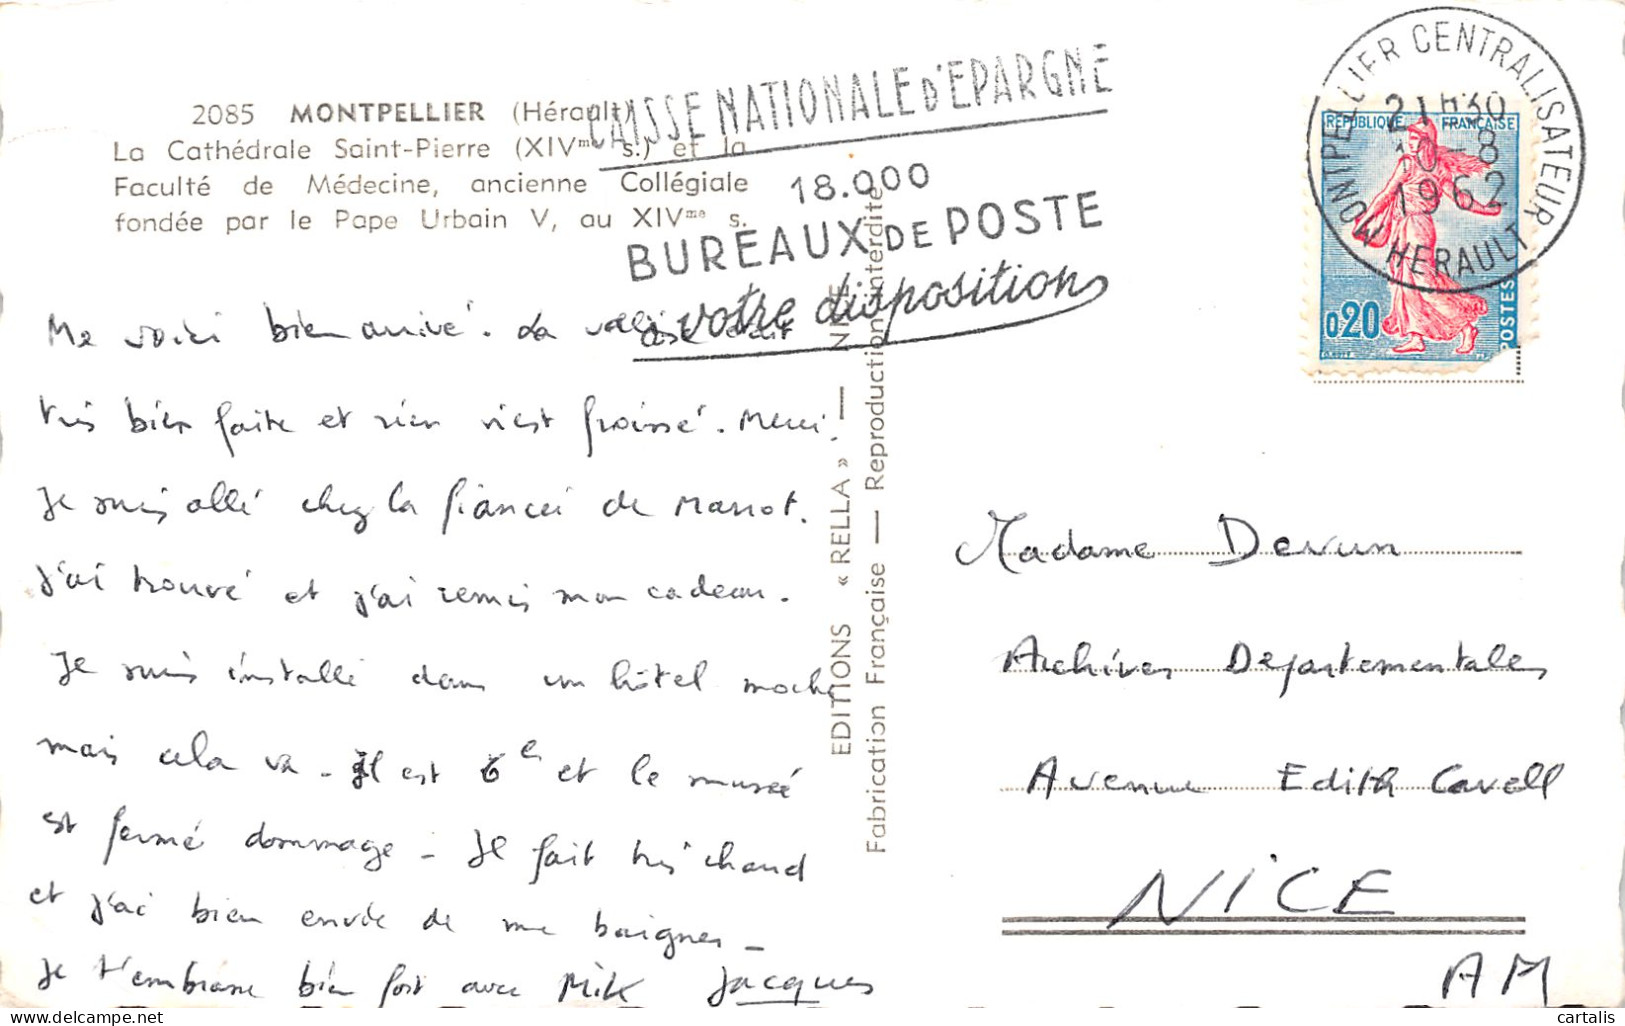 2085 MONTPELLIER (Hérault)
La Cathédrale Saint-Pierre (XIVme s.) et la
Faculté de Médecine, ancienne Collégiale
fondée par le Pape Urbain V, au XIVme s.
CAISSE NATIONALE D'EPARGNE
18.000
BUREAUX DE POSTE
à votre disposition
MONTPELLIER CENTRALISATEUR
21H30
10-8
1962
HERAULT
REPUBLIQUE FRANÇAISE
0,20
POSTES
Me voici bien arrivé. La valise était
très bien faite et rien n'est froissé. Merci.
Je suis allé chez la fiancée de Marrot.
J'ai trouvé et j'ai remis mon cadeau.
Je suis installé dans un hôtel moche
mais cela va - Il est 6 et le musée
est fermé dommage - Il fait très chaud
et j'ai bien envie de me baigner -
Je t'embrasse bien fort avec Mik Jacques
EDITIONS « RELLA » — NICE
Fabrication Française — Reproduction interdite
Madame Devun
Archives Départementales
Avenue Edith Cavell
NICE
AM
cartalis